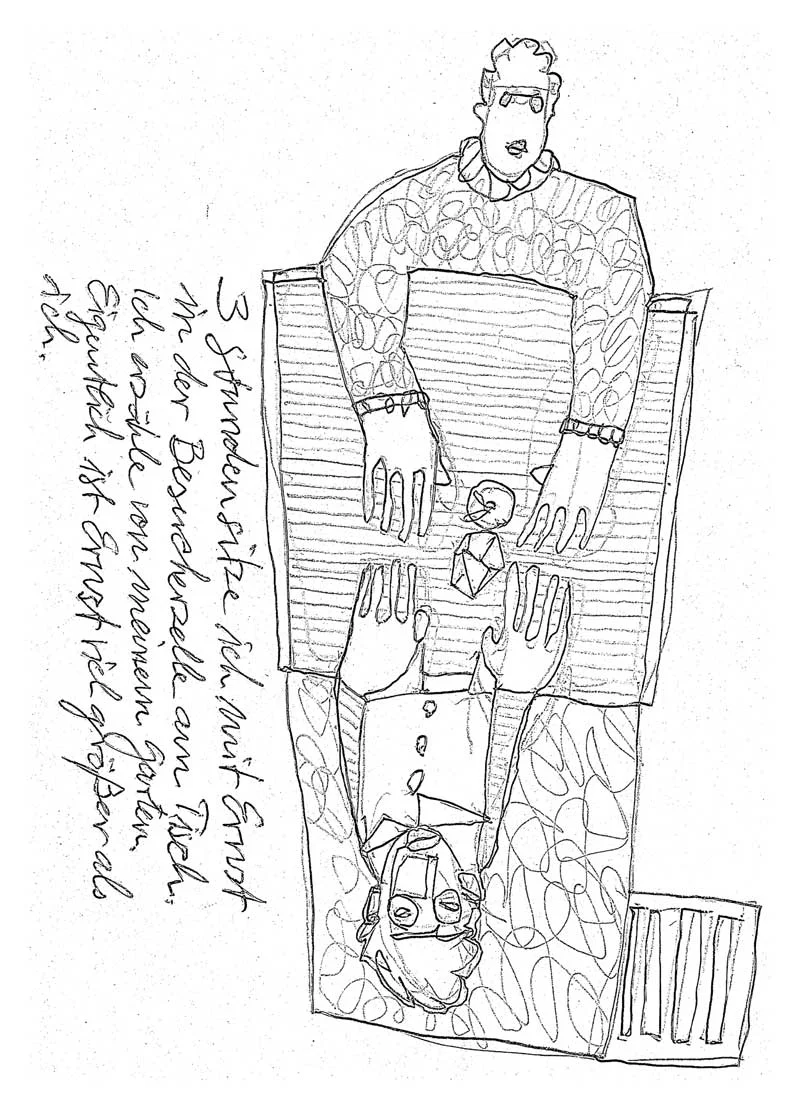 3 Stunden sitze ich mit Ernst
in der Besucherzelle am Tisch.
Ich erzähle von meinem Garten.
Eigentlich ist Ernst viel größer als
ich.